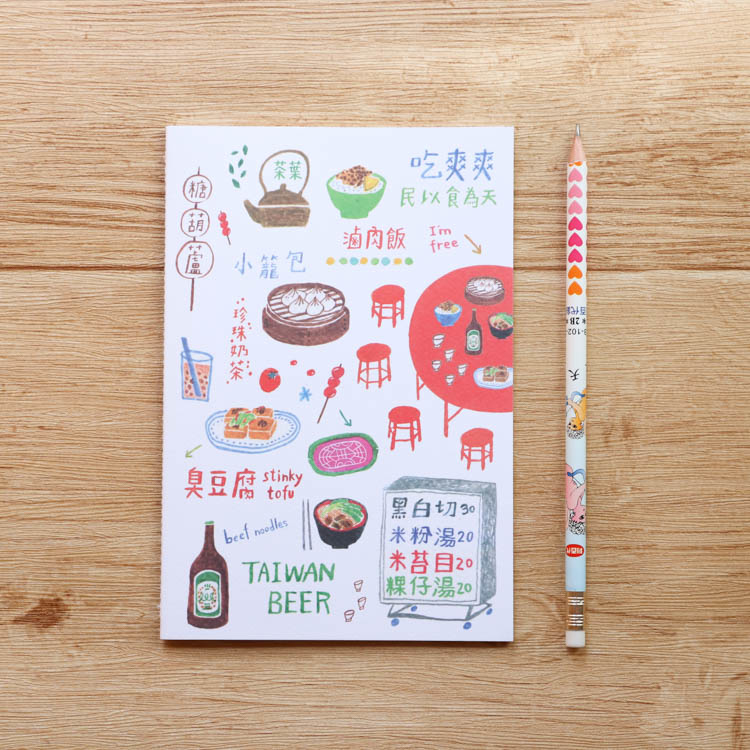 茶葉
吃爽爽
民以食為天
糖葫蘆
滷肉飯
I'm
free
小籠包
珍珠奶茶
臭豆腐 stinky
tofu
黑白切30
米粉湯20
米苔目20
粿仔湯20
beef noodles
TAIWAN
BEER
2B
天